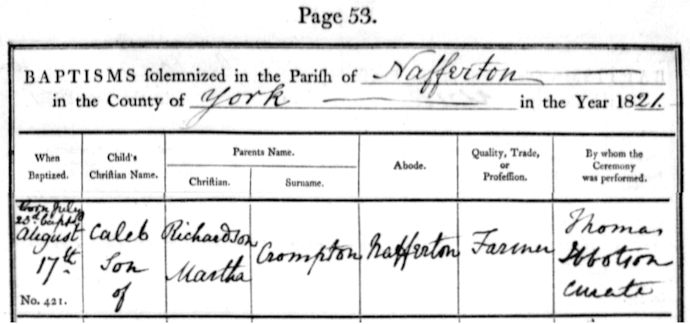 Page 53.
BAPTISMS solemnized in the Parish of Nafferton
in the County of York in the Year 1821.
When Baptized.
Child's Christian Name.
Parents Name.
Christian.
Surname.
Abode.
Quality, Trade, or Profession.
By whom the Ceremony was performed.
Born July
23d Bapt'd
August
17th
No. 421.
Caleb
Son
of
Richardson
Martha
Crompton
Nafferton
Farmer
Thomas
Ibbotson
Curate